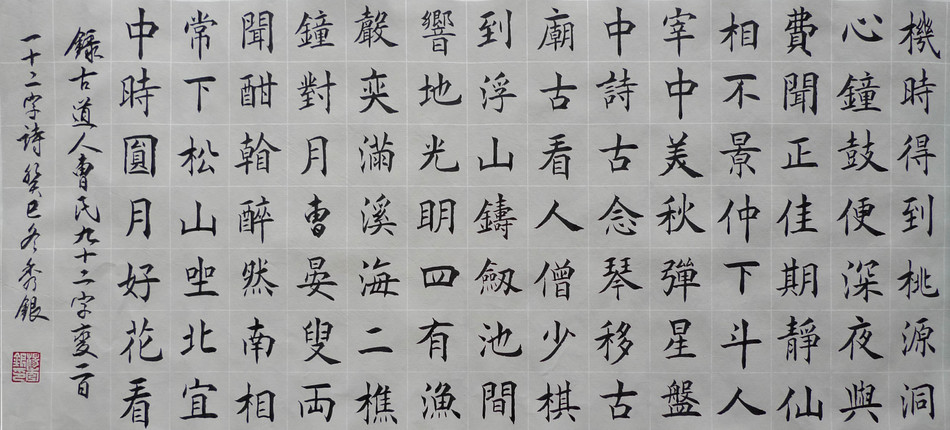 機時得到桃源洞
心鐘鼓便深夜與
費聞正佳期靜仙
相不景仲下斗人
宰中美秋彈星盤
中詩古念琴移古
廟古看人僧少棋
到浮山鑄劔池間
響地光明四有漁
奕滿溪海二樵
鐘對月曹晏叟両
聞酣翰醉然南相
常下松山坐北宜
中時圓月好花看
錄古道人曹氏九十二字變一百
一十二字詩癸巳冬秀銀